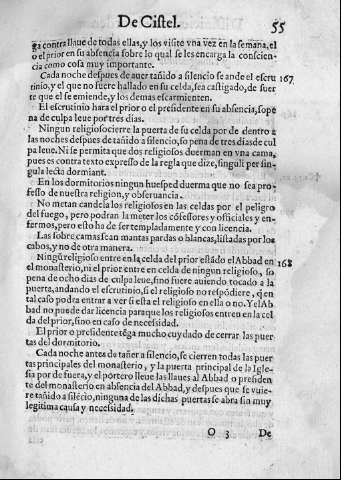 De Cistel.
55
ga contra llaue de todas ellas, y los visite vna vez en la semana, el
o el prior en su absencia sobre lo qual se les encarga la conscien-
cia como cosa muy importante.
Cada noche despues de auer tañido a silencio se ande el escru
167
tinio, y el que no fuere hallado en su celda, sea castigado, de suer
te que el se emiende, y los demas escarmienten.
El escrutinio hara el prior o el presidente en su absencia, so pe
na de culpa leue por tres dias.
Ningun religioso cierre la puerta de su celda por de dentro a
las noches despues de tañido a silencio, so pena de tres dias de cul
pa leue. Ni se permita que dos religiosos duerman en vna cama,
pues es contra texto expresso de la regla que dize, singuli per sin-
gula lecta dormiant.
En los dormitorios ningun huesped duerma que no sea pro-
fesso de nuestra religion, y obseruancia.
No metan candela los religiosos en las celdas por el peligro
del fuego, pero podran la meter los cõfessores y officiales y en-
fermos, pero esto ha de ser templadamente y con licencia.
Las sobre camas sean mantas pardas o blancas, listadas por los
cabos, y no de otra manera.
Ningũ religioso entre en la celda del prior estãdo el Abbad en
168
el monasterio, ni el prior entre en celda de ningun religioso, so
pena de ocho dias de culpa leue, sino fuere auiendo tocado a la
puerta, andando el escrutinio, si el religioso no respõdiere, q̃ en
tal caso podra entrar a ver si esta el religioso en ella o no. Y el Ab
bad no puede dar licencia para que los religiosos entren en la cel
da del prior, sino en caso de necessidad.
El prior o presidente tẽga mucho cuydado de cerrar las puer
tas del dormitorio.
Cada noche antes de tañer a silencio, se cierren todas las puer
tas principales del monasterio, y la puerta principal de la Igle-
sia por de fuera, y el portero lleue las llaues al Abbad o presiden
te del monasterio en absencia del Abbad, y despues que se vuie-
re tañido a silẽcio, ninguna de las dichas puertas se abra sin muy
legitima causa y necessidad.
O 3
De